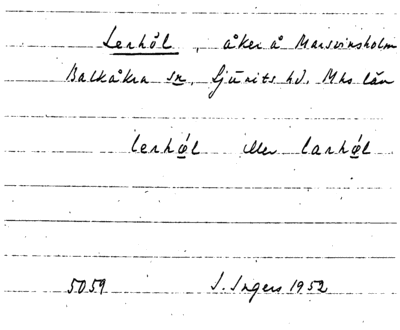 Lerhål, åker å Marsvinsholm
Balkåkra sn, Ljunits hd. Mhs län
lerhǿl eller larhǿl
5059 I. Ingers 1952